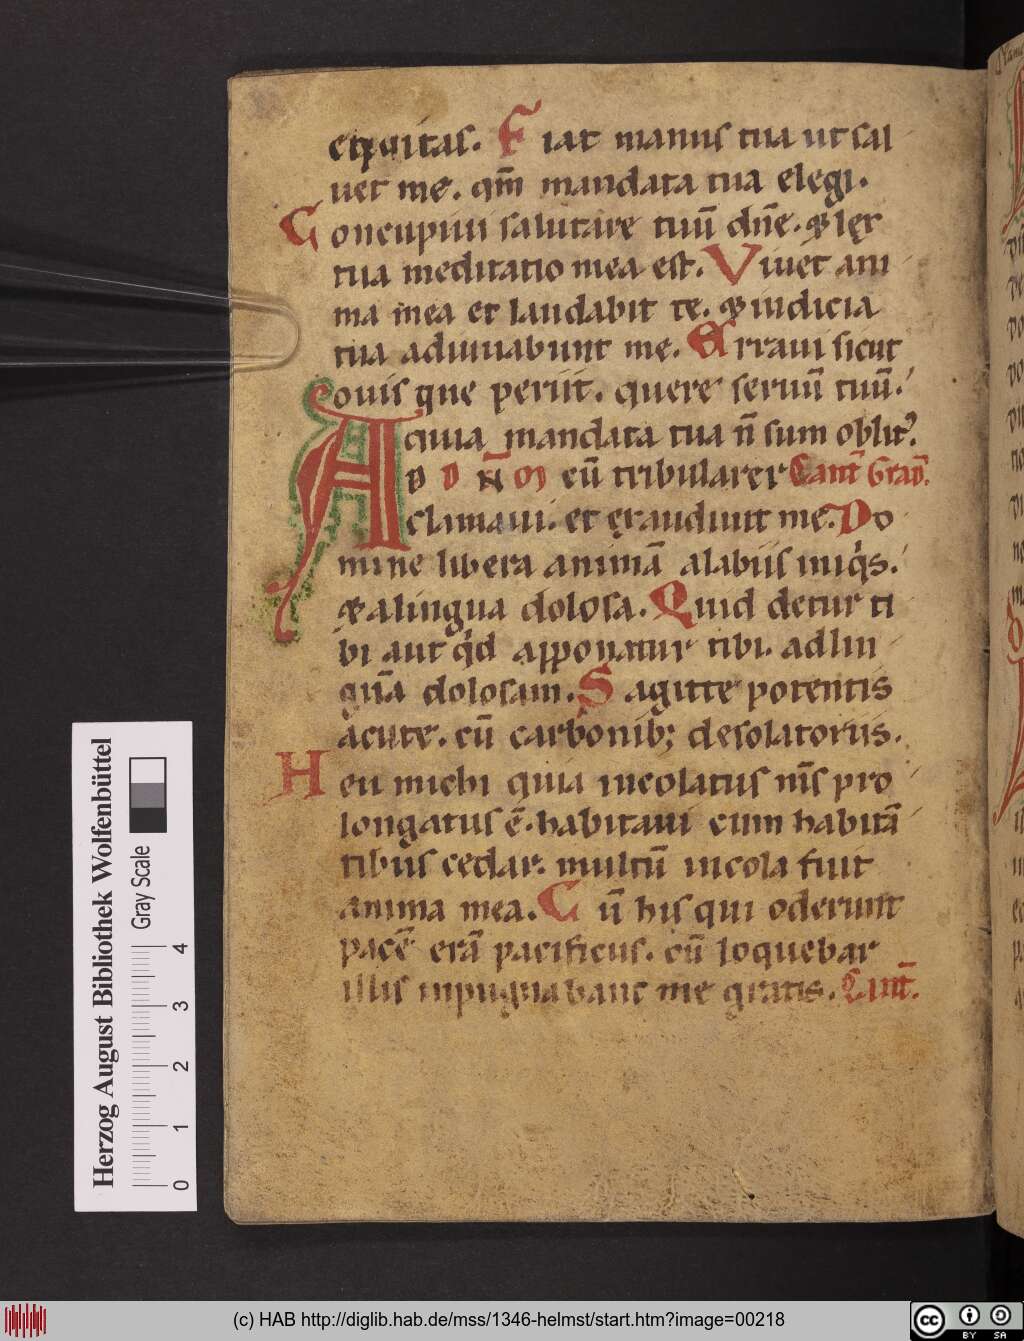 eqvitas. Fiat manus tua ut sal
uet me. qm̄ mandata tua elegi.
Concupiui salutare tuū dn̄e. & lex
tua meditatio mea est. Viuet ani
ma mea et laudabit te. & iudicia
tua adiuuabunt me. Erraui sicut
ouis que periit. quere seruū tuū.
quia mandata tua n̄ sum oblit⁹.
AD DN̄M cū tribularer Cant̄ Grad̄.
clamaui. et exaudiuit me. Do
mine libera animā a labiis iniq̇s.
& a lingua dolosa. Quid detur ti
bi aut q̇d apponatur tibi. ad lin
guā dolosam. Sagitte potentis
acute. cū carbonib; desolatoriis.
Heu michi quia incolatus m̄s pro
longatus ē. habitaui cum habitā
tibus cedar. multū incola fuit
anima mea. Cū his qui oderunt
pacē erā pacificus. cū loquebar
illis inpugnabant me gratis. Cant̄.
Herzog August Bibliothek Wolfenbüttel
Gray Scale
0 1 2 3 4
(c) HAB http://diglib.hab.de/mss/1346-helmst/start.htm?image=00218
cc BY SA